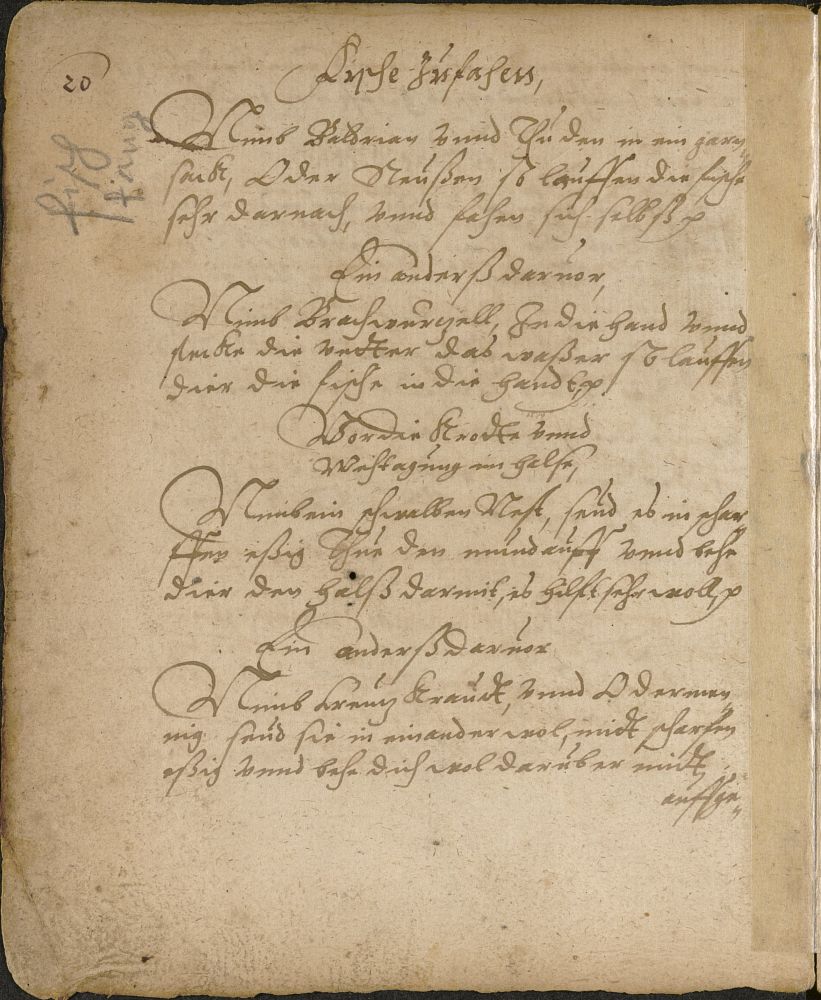 20
Fische Zu fahen,
fisch
fang
Nimb Baldrian vnnd Thu den in ein garn,,
sack, Oder Reußen so lauffen die fische
sehr darnach, vnnd fahen sich selbst p
Ein anderß daruor,
Nimb Brachwurzell, In die hand vnnd
stecke die vnter das waßer so lauffen
dier die fische in die handt, p
Vor die Krodte vnnd
Wehtagung im halse,
Nimb ein schwalben Nest, seud es in schar
ffen eßig Thue den mund auff vnnd behe
dier den halß darmit, es hilft sehr woll, p
Ein anderß daruor
Nimb Creutz Kraudt, vnnd Odermen,,
nig seud sie in einander wol, midt scharfen
eßig vnnd behe dich wol darüber midt
auffge,,